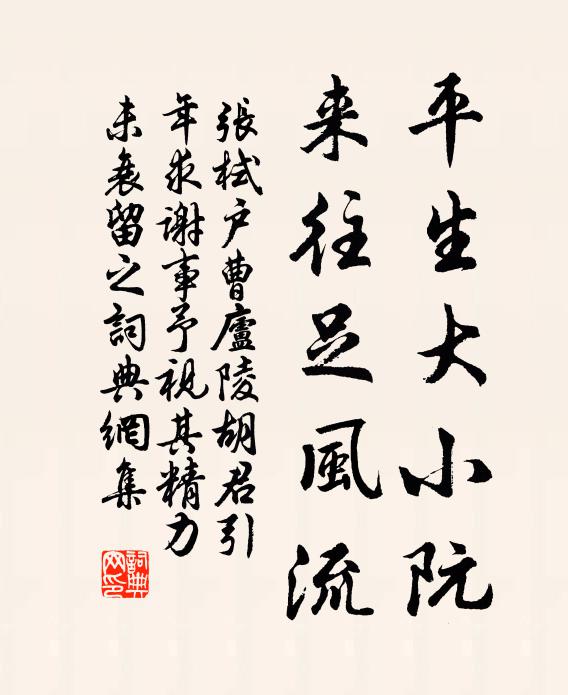 平生大小阮
来往足風流
張栻户曹廬陵胡君引
年求謝事予視其精力
未衰留之詞典網集
詞典網印